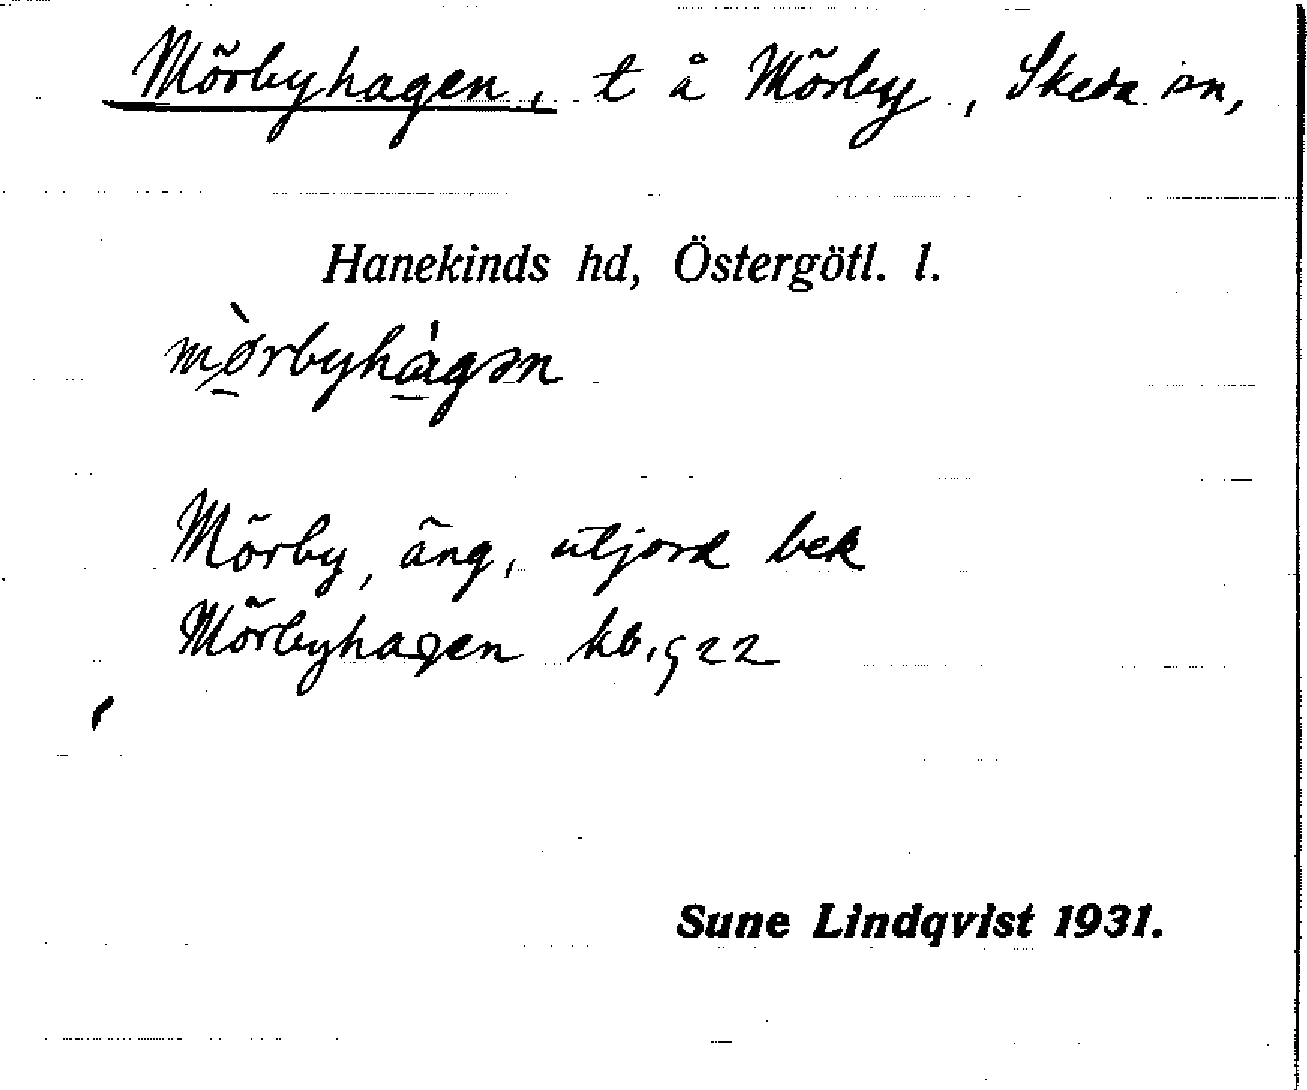 Mörbyhagen, t å Mörby, Skeda sn,
Hanekinds hd, Östergötl. l.
mø̀rbyhàgən
Mörby, äng, utjord bek
Mörbyhagen kb. 922
Sune Lindqvist 1931.